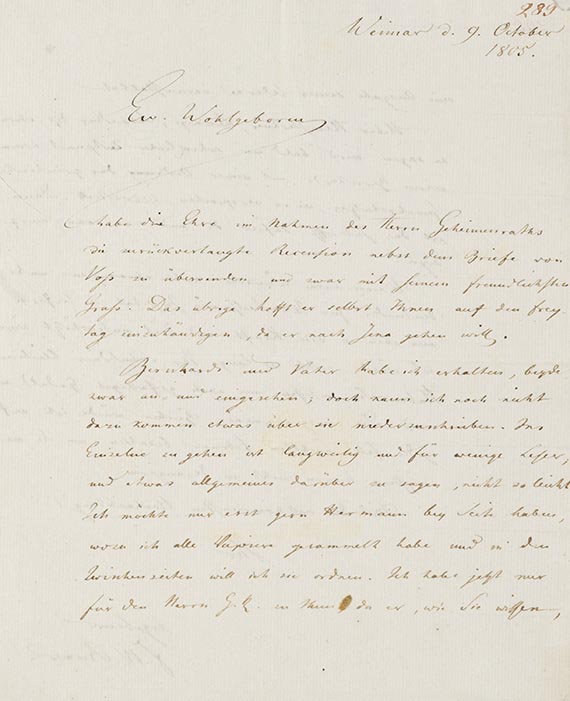 289
Weimar d. 9. October
1805.
Ew. Wohlgeboren
habe die Ehre im Nahmen des Herrn Geheimenraths
die zurückverlangte Recension nebst dem Briefe von
Voss zu übersenden und zwar mit seinem freundlichsten
Gruß. Das übrige hofft er selbst Ihnen auf den Frey-
tag einzuhändigen, da er nach Jena gehen will.
Bernhardi und Vater habe ich erhalten, beyde
zwar an- und eingesehen; doch kann ich noch nicht
dazu kommen etwas über sie niederzuschreiben. Ins
Einzelne zu gehen ist langweilig und für wenige Leser,
und etwas allgemeines darüber zu sagen, nicht so leicht.
Ich möchte nur erst gern Hermann bey Seite haben,
wozu ich alle Papiere gesammelt habe und in den
Zwischenzeiten will ich sie ordnen. Ich habe jetzt nur
für den Herrn G. R. zu thun da er, wie Sie wissen,